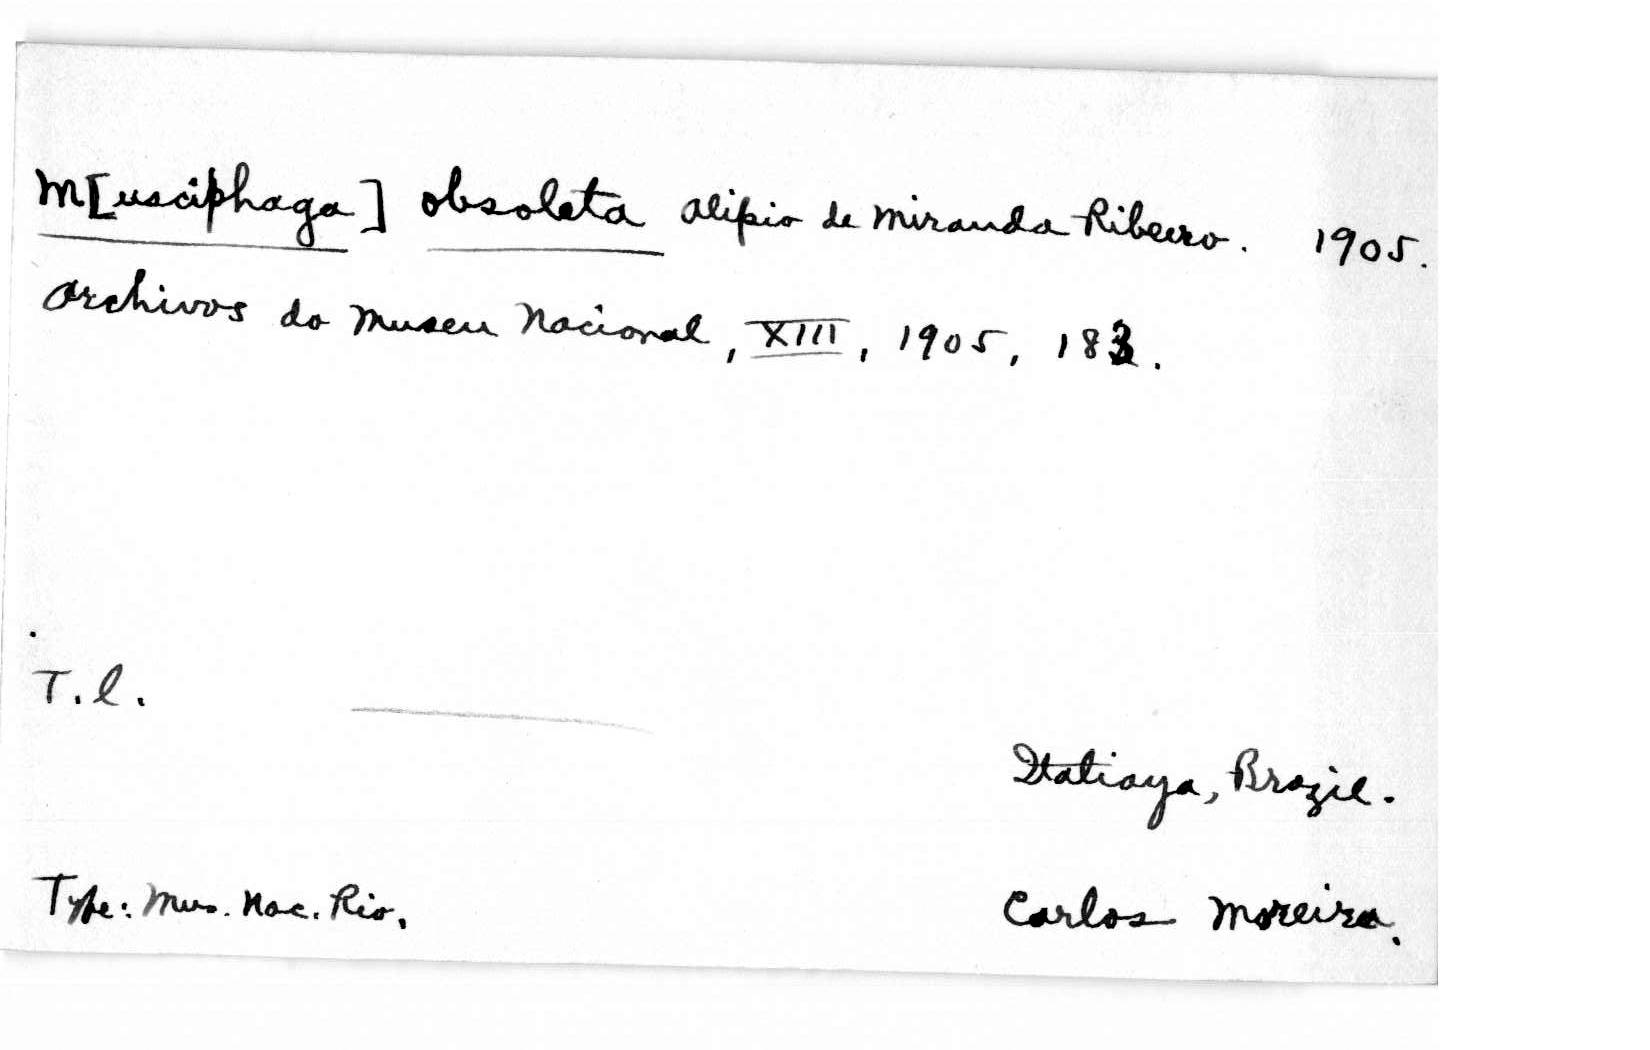 M[usciphaga] obsoleta Alipio de Miranda Ribeiro. 1905.
Archivos do Museu Nacional, XIII, 1905, 183.
T.l.
Itatiaya, Brazil.
Type: Mus. Nac. Rio.
Carlos Moreira.